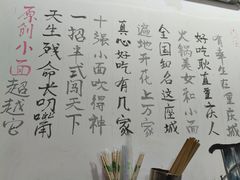 有幸生在重庆城
好吃耿直重庆人
火锅美女和小面
全国知名这座城
遍地开花上万家
真心好吃有几家
十强小面吹得神
一招主式闯天下
天生残命长叨嘴
原创小面超越它